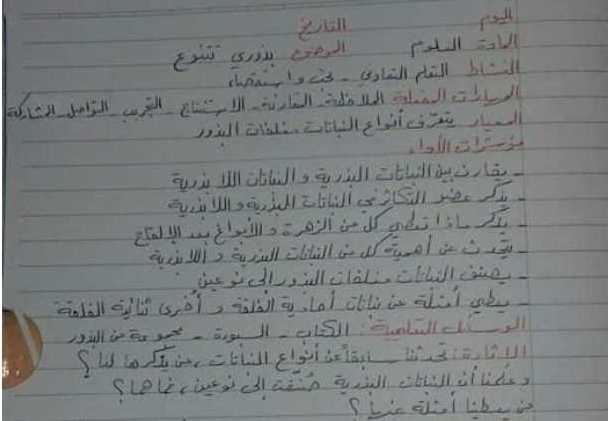 اليوم التاريخ
المادة العلوم الموضوع بذوري تتنوع
النشاط التعلم التعاوني - بحث واستقصاء
المهارات المفعلة الملاحظة - المقارنة - الاستنتاج - التجريب - التواصل - المشاركة
المعيار يتعرف أنواع النباتات مغلفات البذور
مؤشرات الأداء
- يقارن بين النباتات البذرية والنباتات اللا بذرية
- يذكر عضو التكاثر في النباتات البذرية واللا بذرية
- يذكر ماذا تعطي كل من الزهرة والأبواغ بعد الإلقاح
- يتحدث عن أهمية كل من النباتات البذرية و اللابذرية
- يصنف النباتات مغلفات البذور إلى نوعين
- يعطي أمثلة عن نباتات أحادية الفلقة و أخرى ثنائية الفلقة
الوسائل التعليمية: الكتاب - السبورة - مجموعة من البذور
الإثارة: تحدثنا سابقاً عن أنواع النباتات، من يذكرها لنا؟
وعلمنا أن النباتات البذرية صُنفت إلى نوعين، فما هما؟
من يعطينا أمثلة عنها؟